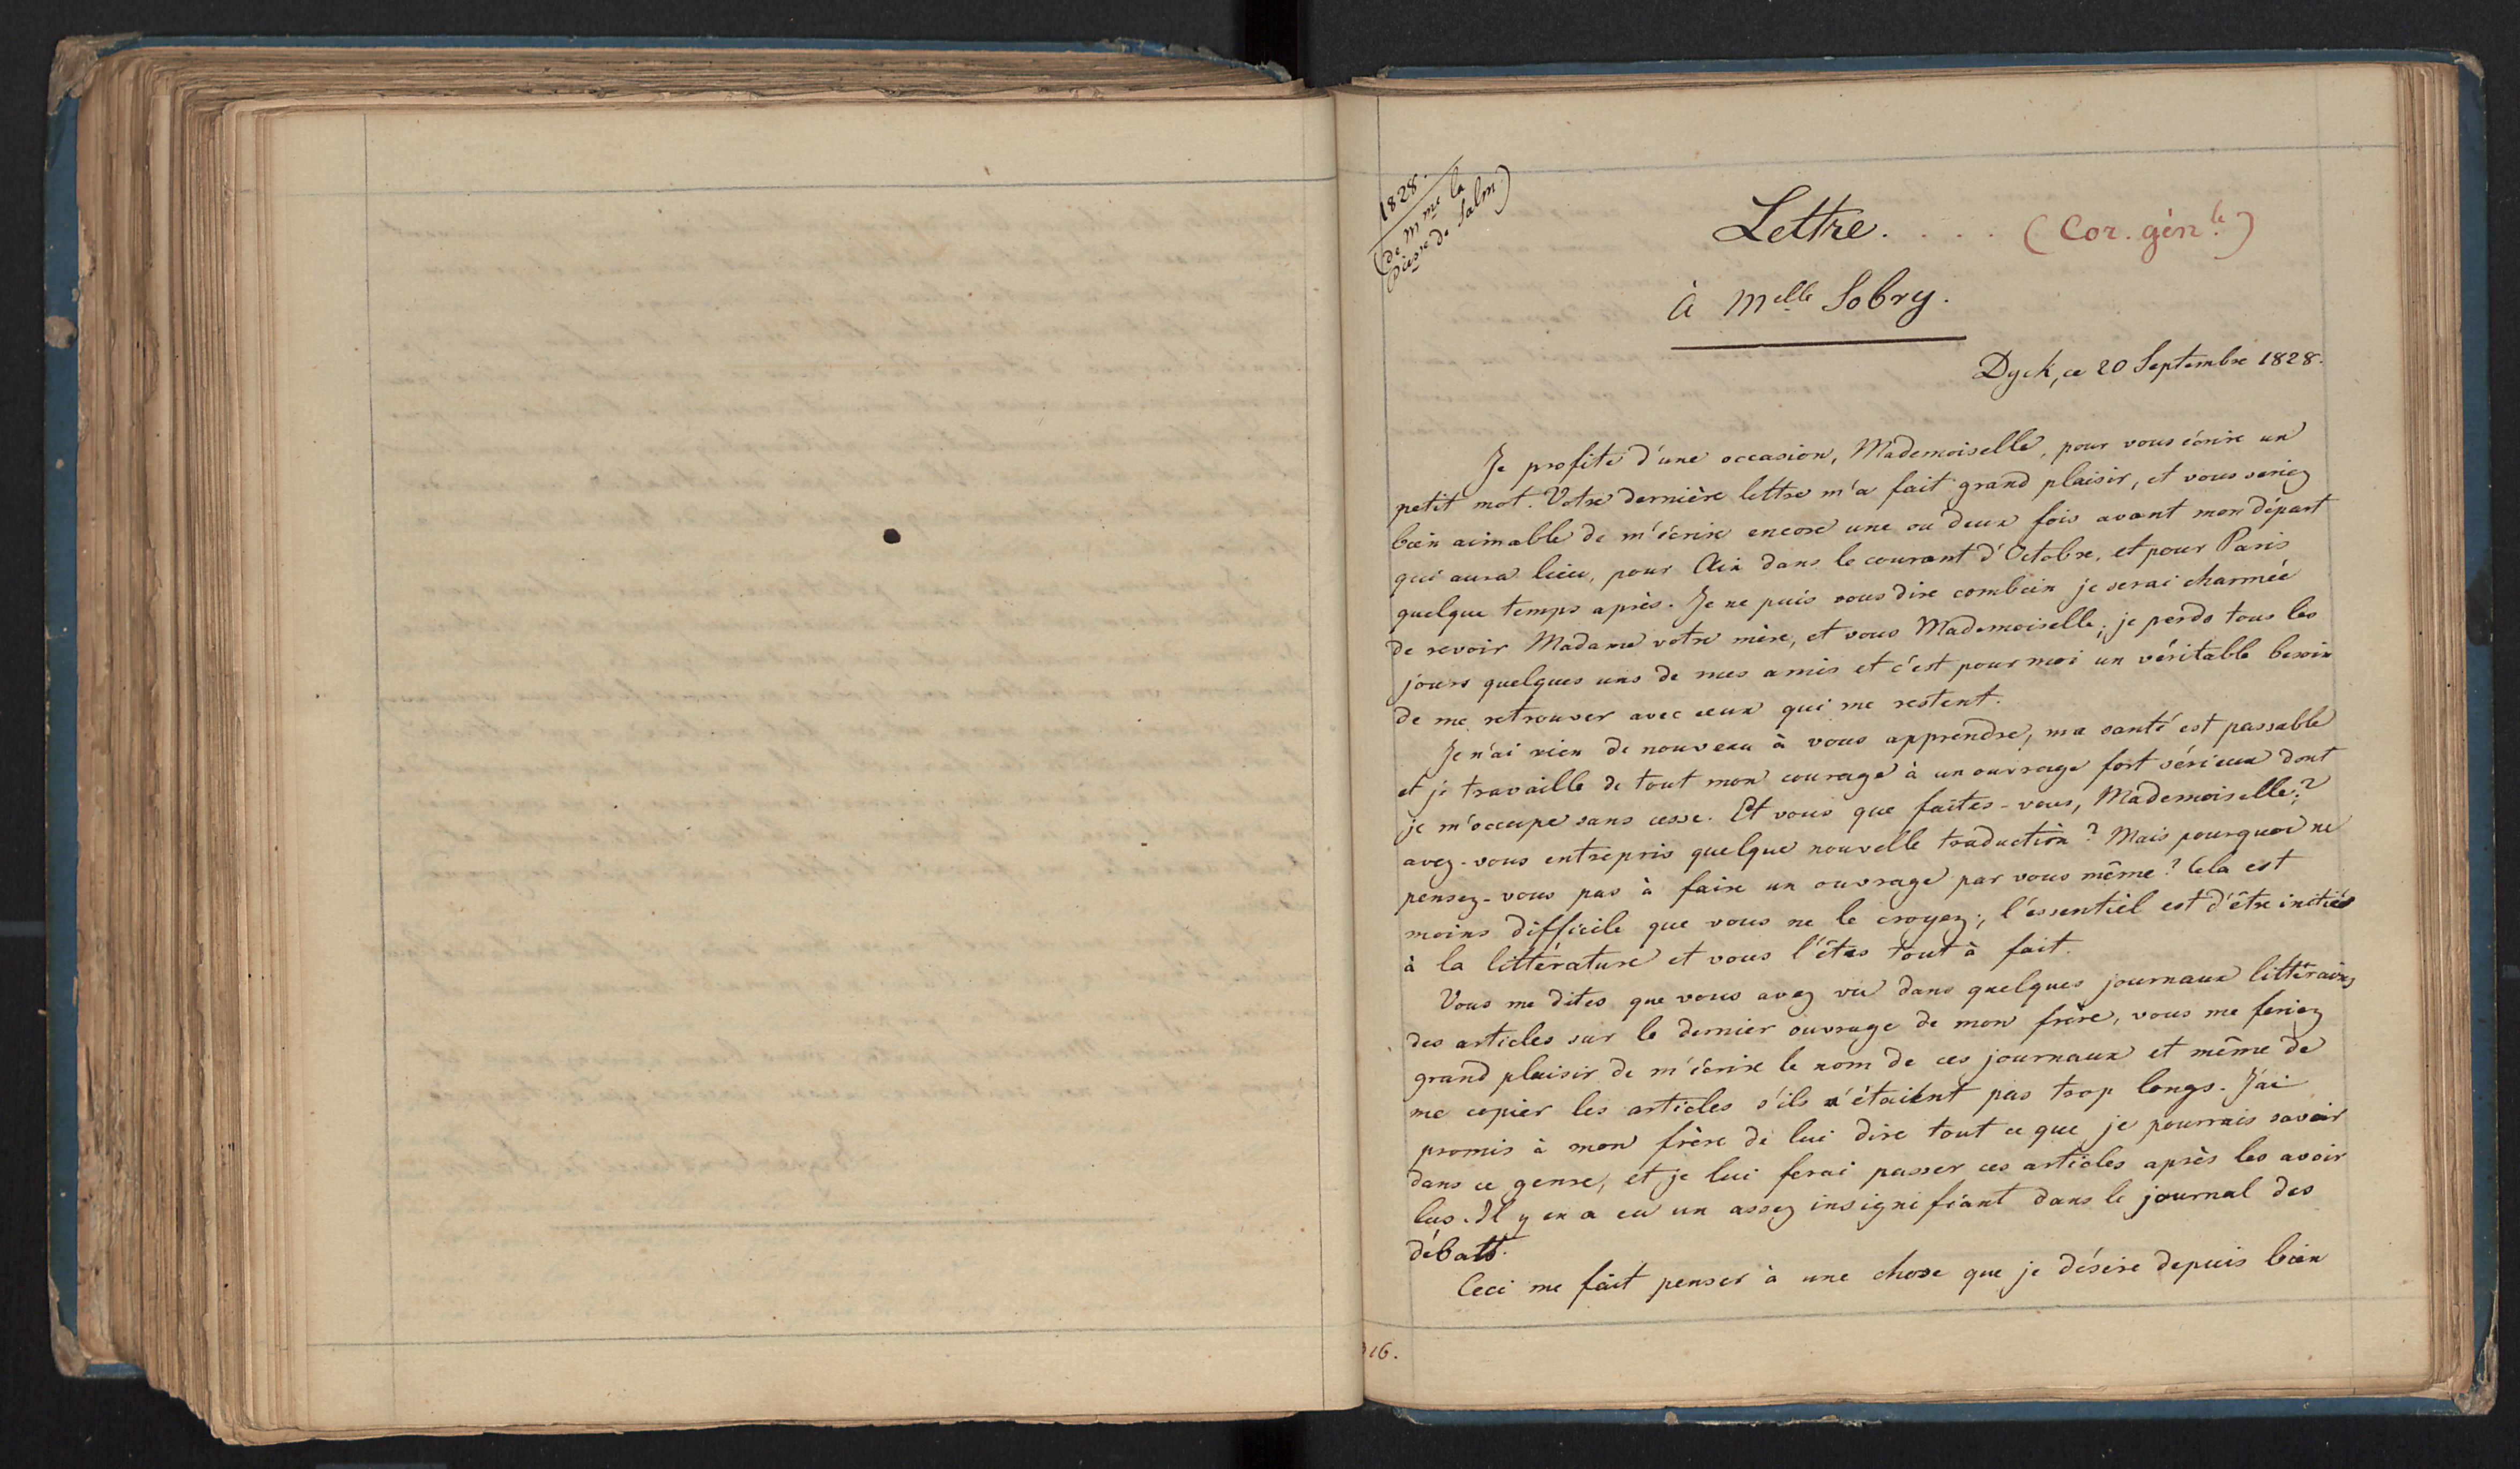 1828.
(de Mme la
Pcesse de Salm)
Lettre. . . . (Cor. génle.)
à Melle Sobry.
Dyck, ce 20 Septembre 1828.
Je profite d'une occasion, Mademoiselle, pour vous écrire un
petit mot. Votre dernière lettre m'a fait grand plaisir, et vous seriez
bien aimable de m'écrire encore une ou deux fois avant mon départ
qui aura lieu, pour Aix dans le courant d'Octobre, et pour Paris
quelque temps après. Je ne puis vous dire combien je serai charmée
de revoir Madame votre mère, et vous Mademoiselle; je perds tous les
jours quelques uns de mes amis et c'est pour moi un véritable besoin
de me retrouver avec ceux qui me restent.
Je n'ai rien de nouveau à vous apprendre, ma santé est passable
et je travaille de tout mon courage à un ouvrage fort sérieux dont
je m'occupe sans cesse. Et vous que faites-vous, Mademoiselle?
avez-vous entrepris quelque nouvelle traduction? Mais pourquoi ne
pensez-vous pas à faire un ouvrage par vous même? Cela est
moins difficile que vous ne le croyez; l'essentiel est d'être initiés
à la littérature et vous l'êtes tout à fait.
Vous me dites que vous avez vu dans quelques journaux littéraires
des articles sur le dernier ouvrage de mon frère, vous me feriez
grand plaisir de m'écrire le nom de ces journaux et même de
me copier les articles s'ils n'étaient pas trop longs. J'ai
promis à mon frère de lui dire tout ce que je pourrais savoir
dans ce genre, et je lui ferai passer ces articles après les avoir
lus. Il y en a eu un assez insignifiant dans le journal des
débats.
Ceci me fait penser à une chose que je désire depuis bien
16.